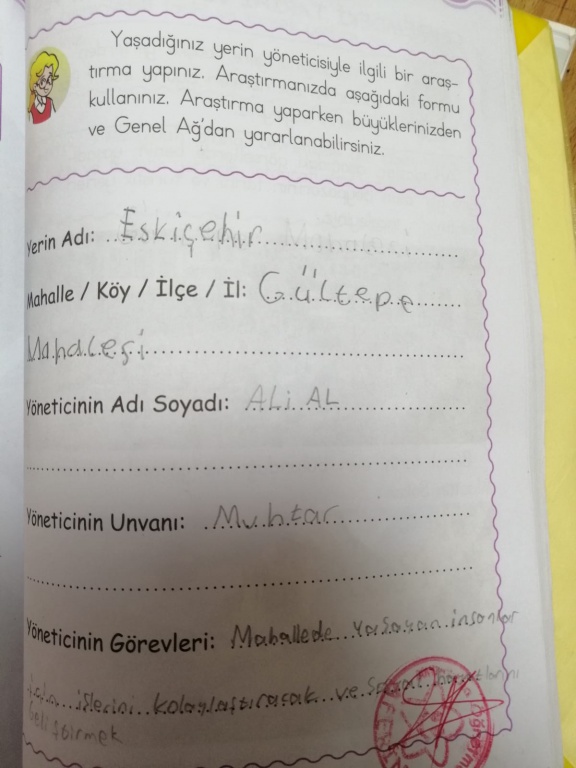 Yaşadığınız yerin yöneticisiyle ilgili bir araş-
tırma yapınız. Araştırmanızda aşağıdaki formu
kullanınız. Araştırma yaparken büyüklerinizden
ve Genel Ağ'dan yararlanabilirsiniz.
Yerin Adı: Eskiçehir
Mahalle / Köy / İlçe / İl: Gültepe
Mahalesi
Yöneticinin Adı Soyadı: ALi AL
Yöneticinin Unvanı: Muhtar
Yöneticinin Görevleri: Mahallede Yaşayan insanlar
için işlerini kolaylaştıracak ve